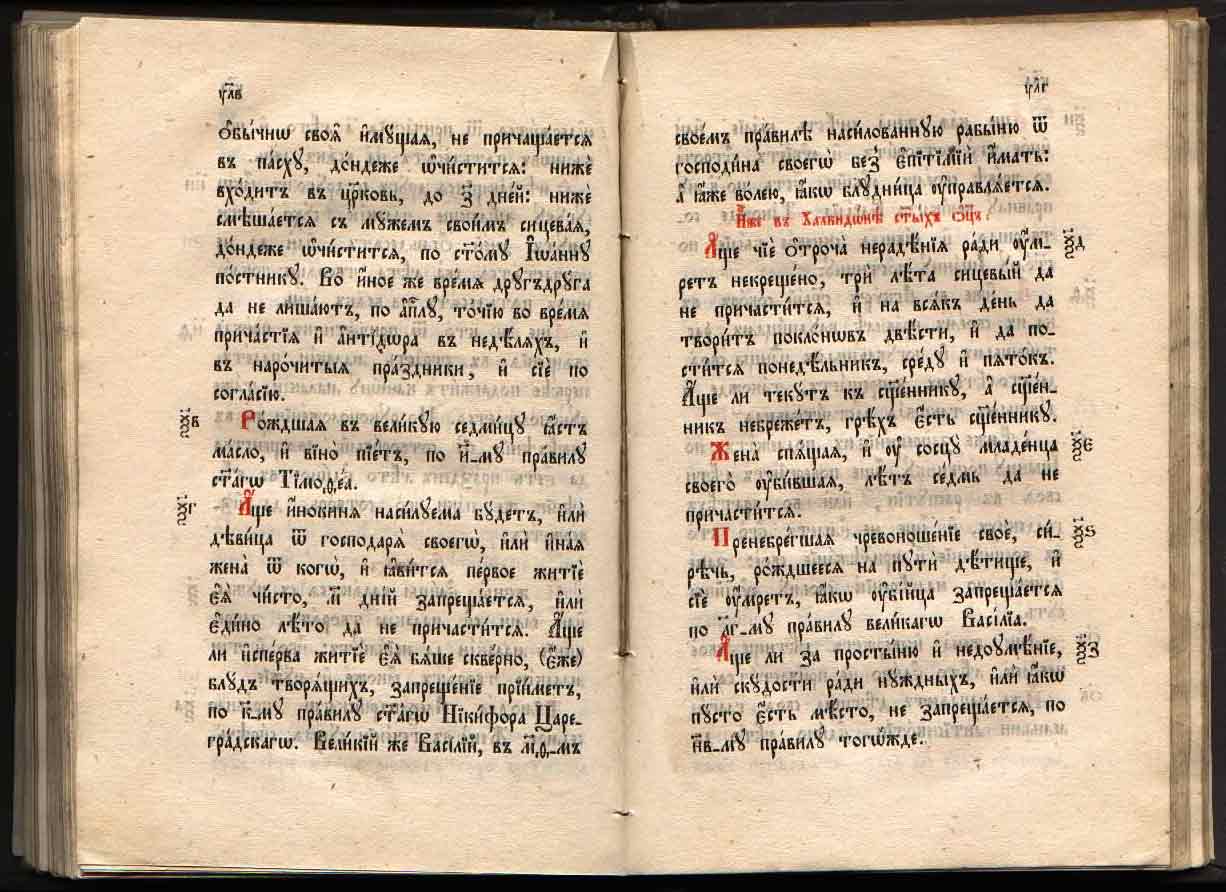 ұ҃лв
Ѻбы́чнѡ своѧ̑ и҆мꙋ́щаѧ, не причаща́етсѧ
въ па́схꙋ, до́ндеже ѡ҆чи́ститсѧ: нижѐ
вхо́дитъ въ цр҃ковь, до з҃ дне́й: нижѐ
смѣша́етсѧ съ мꙋ́жемъ свои́мъ сицева́ѧ,
до́ндеже ѡ҆чи́ститсѧ, по ст҃о́мꙋ І҆ѡа́ннꙋ
по́стникꙋ. Во и҆́ное же вре́мѧ дрꙋ́гъдрꙋга
да не лиша́ютъ, по а҆пⷭ҇лꙋ, то́чїю во вре́мѧ
прича́стїѧ и҆ а҆нтїдѡ́ра въ недѣ́лѧхъ, и҆
въ наро́читыѧ пра́здники, и҆ сїѐ по
согла́сїю.
в҃
Ро́ждшаѧ въ вели́кꙋю седми́цꙋ ꙗ҆́стъ
ма́сло, и҆ вїно̀ пїе́тъ, по и҃_мꙋ пра́вилꙋ
ст҃а́гѡ Тїмоѳе́а.
г҃
А҆́ще и҆нокинѧ наси́лꙋема бꙋ́детъ, и҆лѝ
дѣви́ца ѿ господарѧ̀ своегѡ̀, и҆лѝ и҆на́ѧ
жена̀ ѿ когѡ̀, и҆ ꙗ҆ви́тсѧ пе́рвое житїѐ
є҆ѧ̀ чи́сто, м҃ дні́й запреща́етсѧ, и҆лѝ
є҆ди́но лѣ́то да не причасти́тсѧ. А҆́ще
ли и҆спе́рва житїѐ є҆ѧ̀ бѧ́ше скве́рно, (є҆́же)
блꙋ́дъ творѧ́щихъ, запреще́нїе прїи́метъ,
по к҃_мꙋ пра́вилꙋ ст҃а́гѡ Нїки́фора Царе_
гра́дскагѡ. Вели́кїй же Васі́лїй, въ м҃ѳ_мъ
ұ҃лг
свое́мъ пра́вилѣ наси́лованнꙋю рабы́ню ѿ
господи́на своегѡ̀ без̾ є҆пїтїмі́й и҆́мать:
а҆ ꙗ҆́же во́лею, ꙗ҆́кѡ блꙋдни́ца ᲂу҆правлѧ́етсѧ.
И҆̀же въ Халкидѡ́нѣ ст҃ы́хъ ѻ҆ц҃ъ:
д҃
А҆́ще чїѐ ѻ҆троча̀ нерадѣ́нїѧ ра́ди ᲂу҆́м_
ретъ некреще́но, трѝ лѣ̑та сицевы́й да
не причасти́тсѧ, и҆ на всѧ́къ де́нь да
твори́тъ покло́нѡвъ двѣ́сти, и҆ да по_
сти́тсѧ понедѣ́льникъ, сре́дꙋ и҆ пѧто́къ.
А҆́ще ли текꙋ́тъ къ сщ҃е́нникꙋ, а҆ сщ҃е́н_
никъ небреже́тъ, грѣ́хъ є҆́сть сщ҃е́нникꙋ.
є҃
Жена̀ спѧ́щаѧ, и҆ ᲂу҆ сосцꙋ̀ младе́нца
своего̀ ᲂу҆би́вшаѧ, лѣ́тъ се́дмь да не
причасти́тсѧ.
ѕ҃
Пренебре́гшаѧ чревоноше́нїе своѐ, си́_
рѣчь, ро́ждшеесѧ на пꙋтѝ дѣ́тище, и҆
сїѐ ᲂу҆́мретъ, ꙗ҆́кѡ ᲂу҆бі́йца запреща́етсѧ
по л҃г_мꙋ пра́вилꙋ вели́кагѡ Васі́лїа.
з҃
А҆́ще ли за простыню̀ и҆ недоꙋмѣ́нїе,
и҆лѝ скꙋ́дости ра́ди нꙋ́ждныхъ, и҆лѝ ꙗ҆́кѡ
пꙋ́сто є҆́сть мѣ́сто, не запреща́етсѧ, по
н҃в_мꙋ пра́вилꙋ тогѡ́жде.